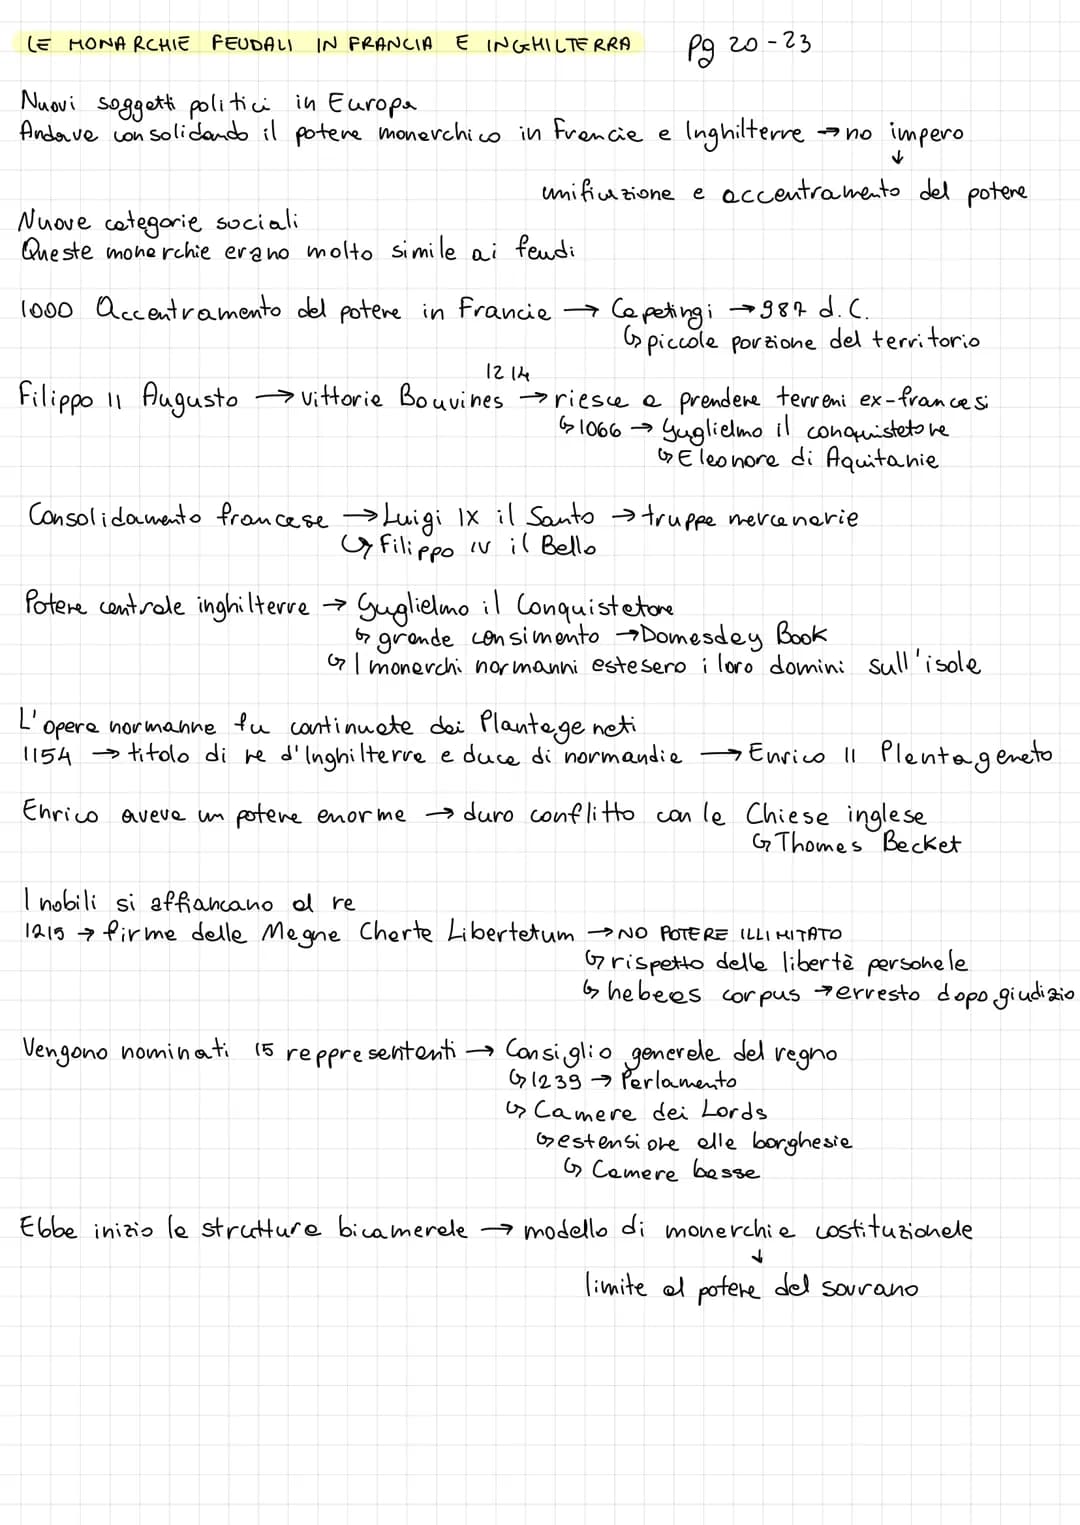 LE MONARCHIE FEUDALI IN FRANCIA E INGHILTERRA Pg 20-23
Nuovi soggetti politici in Europa
Andava consolidando il potere monarchico in Francia e Inghilterra → no impero
↓
unificazione e accentramento del potere
Nuove categorie sociali
Queste monarchie erano molto simile ai feudi
1000 Accentramento del potere in Francia → Capetingi → 987 d.C.
↳ piccola porzione del territorio
1214
Filippo II Augusto → vittoria Bouvines → riesce a prendere terreni ex-francesi
↳ 1066 → Guglielmo il conquistatore
↳ Eleonora di Aquitania
Consolidamento francese → Luigi IX il Santo → truppe mercenarie
↳ Filippo IV il Bello
Potere centrale inghilterra → Guglielmo il Conquistatore
↳ grande consimento → Domesday Book
↳ I monarchi normanni estesero i loro domini sull'isola
L'opera normanna fu continuata dai Plantageneti
1154 → titolo di re d'Inghilterra e duca di normandia → Enrico II Plantageneto
Enrico aveva un potere enorme → duro conflitto con la Chiesa inglese
↳ Thomas Becket
I nobili si affiancano al re
1215 → firma della Magna Charta Libertatum → NO POTERE ILLIMITATO
↳ rispetto della libertà personale
↳ habeas corpus → arresto dopo giudizio
Vengono nominati 15 reppresentanti → Consiglio generale del regno
↳ 1239 → Parlamento
↳ Camera dei Lords
↳ estensione alla borghesia
↳ Camera bassa
Ebbe inizio la struttura bicamerale → modello di monarchia costituzionale
↓
limite al potere del sovrano